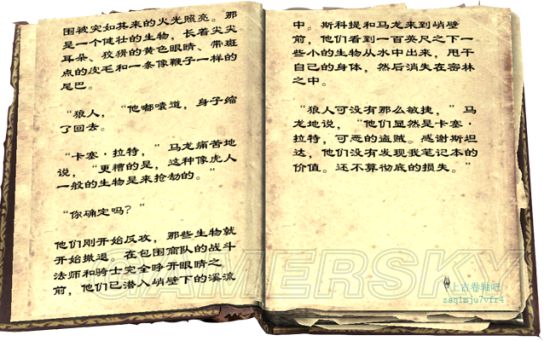 围被突如其来的火光照亮。那
是一个健壮的生物，长着尖尖
耳朵、狡猾的黄色眼睛、带斑
点的皮毛和一条像鞭子一样的
尾巴。
“狼人，“他嘟嚷道，身子缩
了回去。
“卡塞·拉特，”马龙痛苦地
说，“更糟的是，这种像虎人
一般的生物是来抢劫的。”
“你确定吗？”
他们刚开始反攻，那些生物就
开始撤退。在包围商队的战斗
法师和骑士完全睁开眼睛之
前，他们已潜入峭壁下的溪流
中。斯科提和马龙来到峭壁
前，他们看到一百英尺之下一
些小的生物从水中出来，甩干
自己的身体，然后消失在密林
之中。
“狼人可没有那么敏捷，”马
龙地说，“他们显然是卡塞·
拉特，可恶的盗贼。感谢斯坦
达，他们没有发现我笔记本的
价值。还不算彻底的损失。”
GAMERSKY
上古卷轴吧
zaq1mju7vfr4